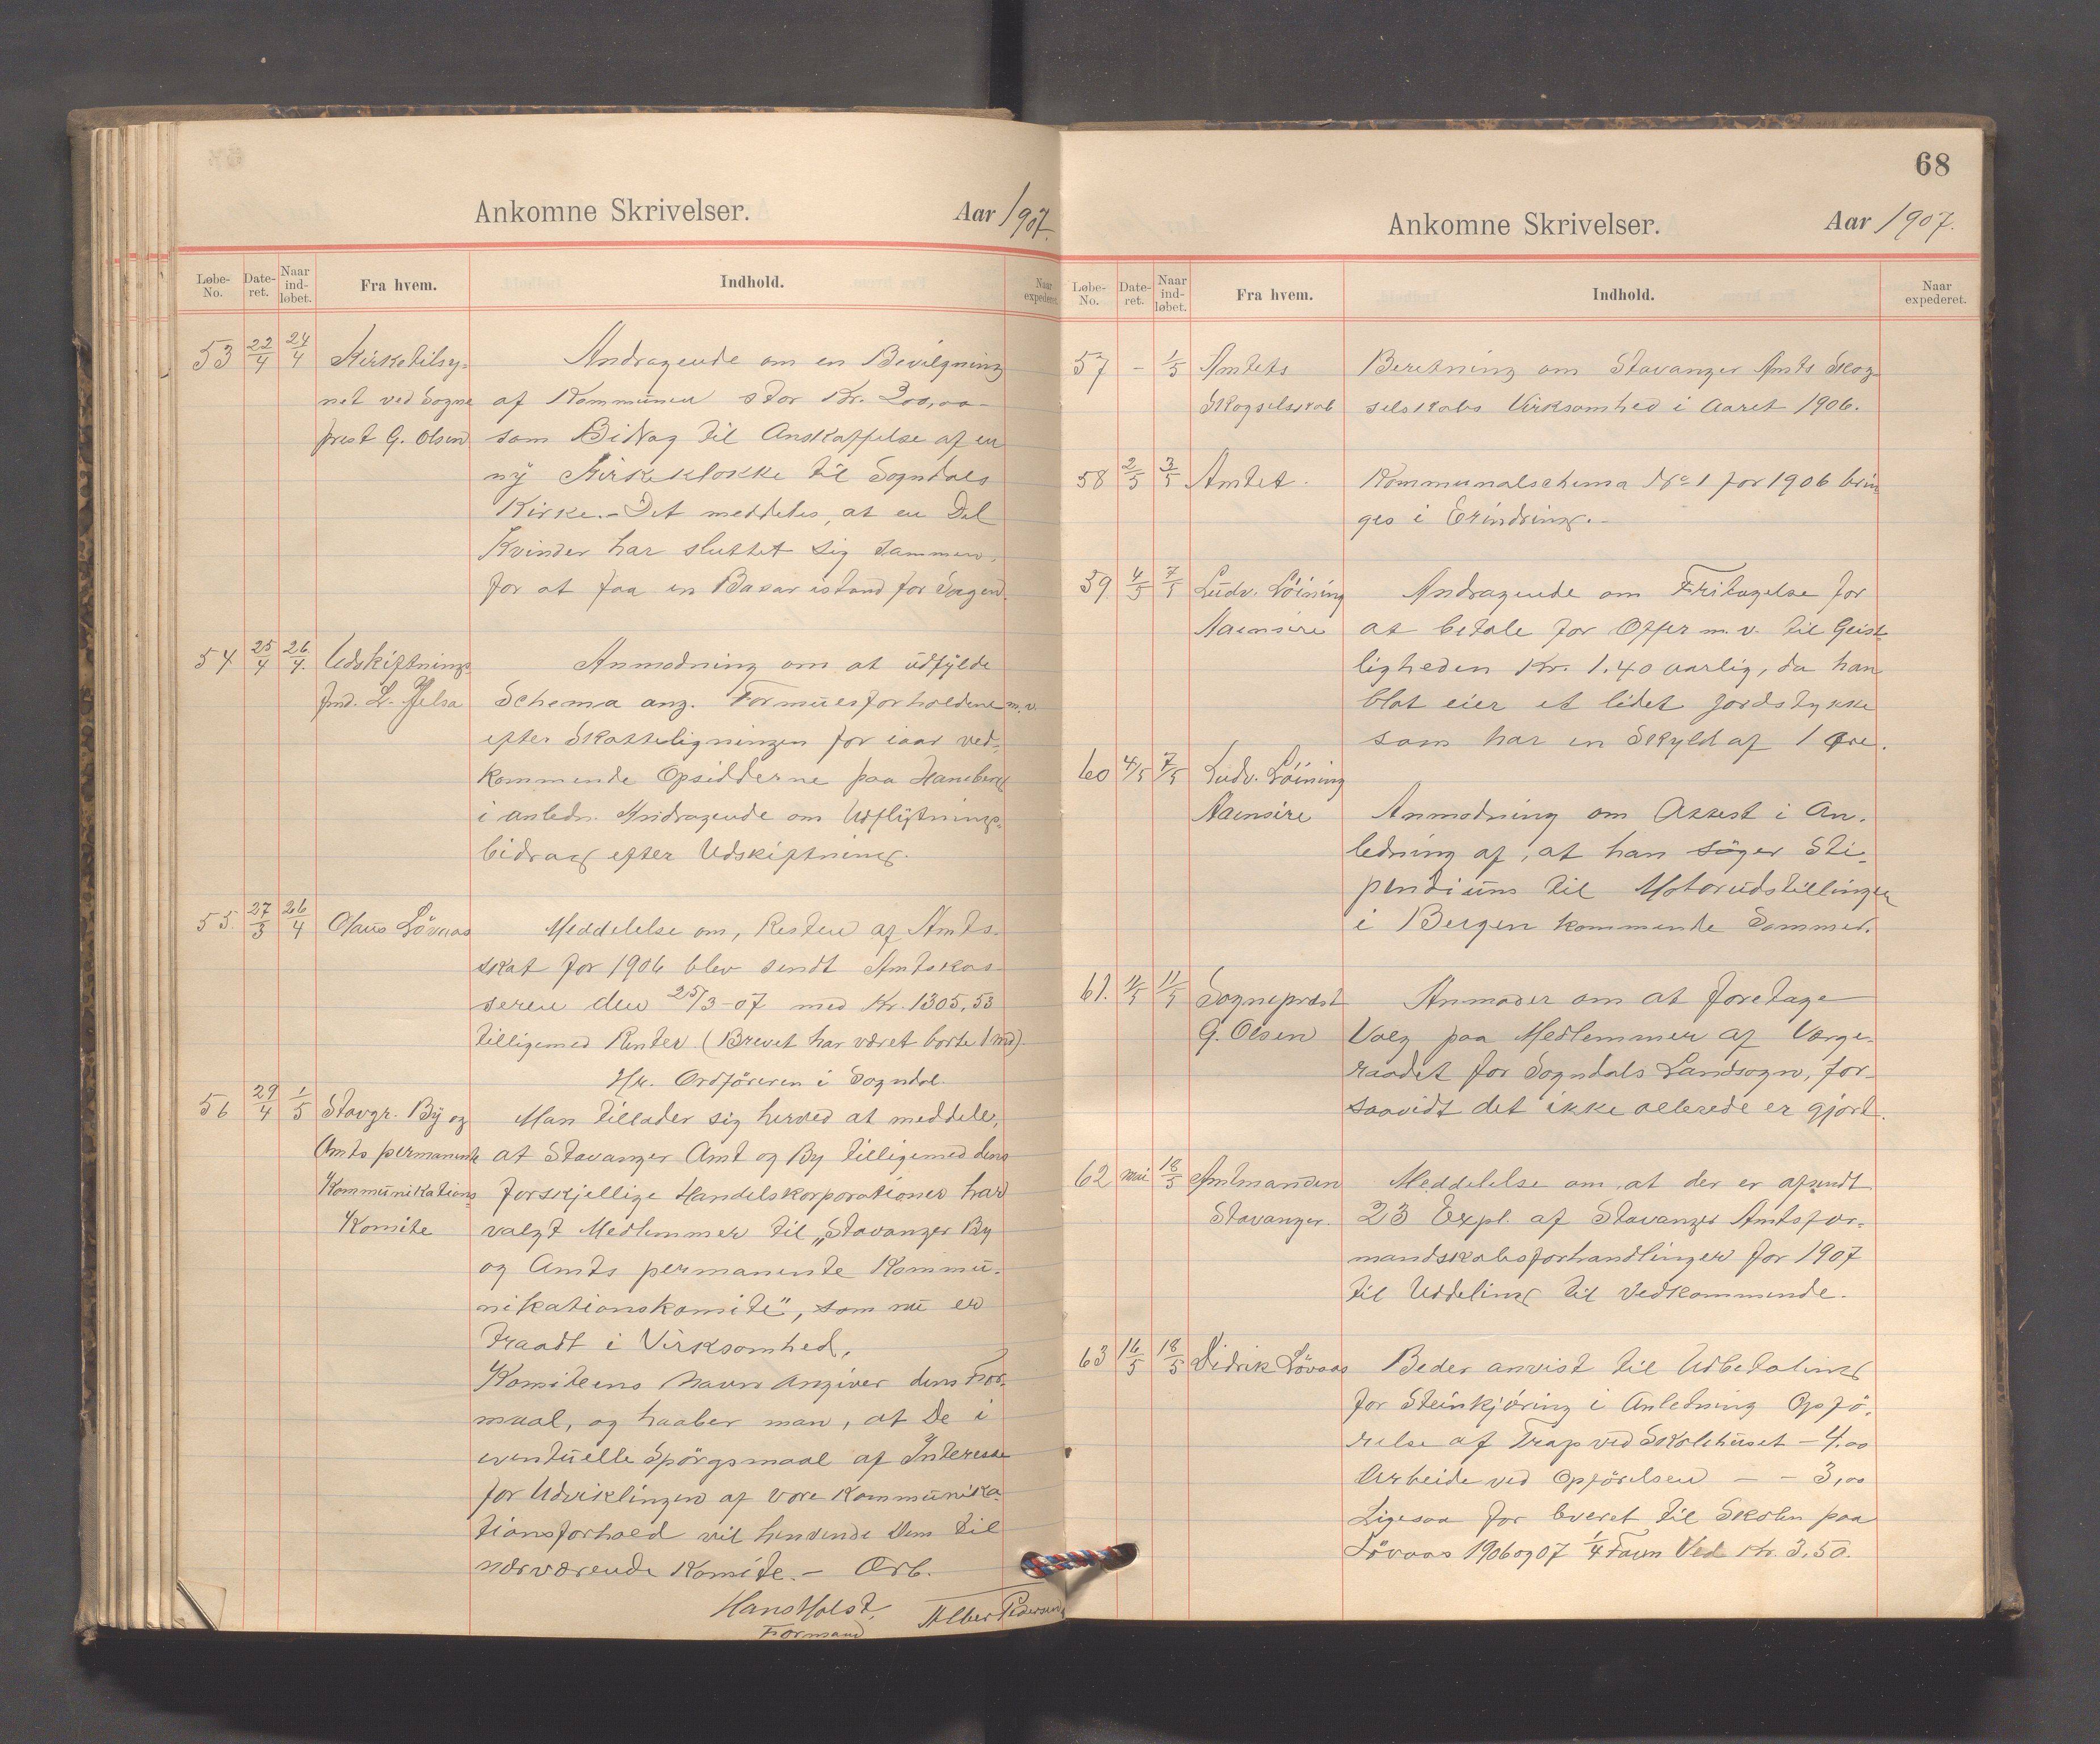 Ankomne Skrivelser.
Aar 1907.
Løbe-No.
Date-ret.
Naar ind-løbet.
Fra hvem.
Indhold.
Naar expederet.
53 22/4 24/4 Kirketilsy- Andragende om en Bevilgning
net ved Sogne af Kommunen stor Kr. 200,00
prest G. Olsen som Bidrag til Anskaffelse af en
ny Kirkeklokke til Sogndals
Kirke. - Det meddeles, at en Del
Kvinder har sluttet sig sammen,
for at faa en Basar istand for Sagen.
54 25/4 26/4. Udskiftnings- Anmodning om at udfylde
fmd. L. Jelsa Schema ang. Formuesforholdene m.v.
efter Skatteligningen for iaar ved-
kommende Opsidderne paa Haneberg
i anledn. Andragende om Udflytnings-
bidrag efter Udskiftning.
55. 27/3 26/4 Olaus Lövaas Meddelelse om, Resten af Amts-
skat for 1906 blev sendt Amtskas-
seren den 25/3-07 med Kr. 1305,53
tilligemed Renter. (Brevet har været borte 1 md).
Hr. Ordföreren i Sogndal.
56 29/4 1/5 Stavgr. By og Man tillader sig herved at meddele,
Amts permanente at Stavanger Amt og By tilligemed dens
Kommunikations- forskjellige Handelskorporationer har
Komite valgt Medlemmer til „Stavanger By
og Amts permanente Kommu-
nikationskomite", som nu er
traadt i Virksomhed.
Komiteens Navn angiver dens For-
maal, og haaber man, at De i
eventuelle Spörgsmaal af Interesse
for Udviklingen af vore Kommunika-
tionsforhold vil henvende Dem til
nærværende Komite. - Ærb.
Hans Holst, Albert Pedersen
Formand
68
Ankomne Skrivelser.
Aar 1907.
Løbe-No.
Date-ret.
Naar ind-løbet.
Fra hvem.
Indhold.
Naar expederet.
57 - 1/5 Amtets Beretning om Stavanger Amts Skog-
Skogselskab selskabs Virksomhed i Aaret 1906.
58 2/5 3/5 Amtet. Kommunalschema No 1 for 1906 brin
ges i Erindring. -
59 4/5 7/5 Ludv. Löining Andragende om Fritagelse for
Aaensire at betale for Offer m.v. til Geist-
ligheden Kr. 1.40 aarlig, da han
blot eier et lidet Jordstykke
som har en Skyld af 1 Øre.
60 4/5 7/5 Ludv. Löining
Aaensire Anmodning om Attest i An-
ledning af, at han söger Sti-
pendium til Motorudstillingen
i Bergen kommende Sommer.
61. 11/5 11/5 Sogneprest Anmoder om at foretage
G. Olsen Valg paa Medlemmer af Værge-
raadet for Sogndals Landsogn, for-
saavidt det ikke allerede er gjort.
62 Mai 18/5 Amtmanden Meddelelse om, at der er afsendt
Stavanger. 23 Expl. af Stavanger Amtsfor-
mandskabsforhandlinger for 1907
til Uddeling til Vedkommende.
63 16/5 18/5 Didrik Lövaas Beder anvist til Udbetaling
for Steinkjöring i Anledning Opfö-
relse af Trap ved Skolehuset - 4,00
Arbeide ved Opförelsen - - 3,00
Ligesaa for leveret til Skolen paa
Lövaas 1906 og 07 1/4 Favn Ved Kr. 3,50.